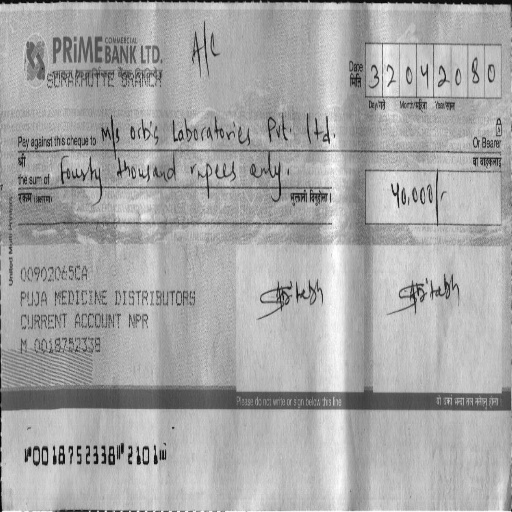 A/C
PRiME COMMERCIAL BANK LTD.
Date 3 2 0 4 2 0 8 0
मिति
Day/गते Month/महिना Year/साल
Pay against this cheque to M/s Orbis Laboratories Pvt. Ltd. Or Bearer
श्री वा वाहकलाई
the sum of Fourty thousand rupees only.
रकम (अक्षरमा) भुक्तानी दिनुहोला । 40,000/-
00902065CA
PUJA MEDICINE DISTRIBUTORS
CURRENT ACCOUNT NPR
M 0018752338
Please do not write or sign below this line
यो रेखा भन्दा तल नलेख्नु होला
⑈0018752338⑈2101